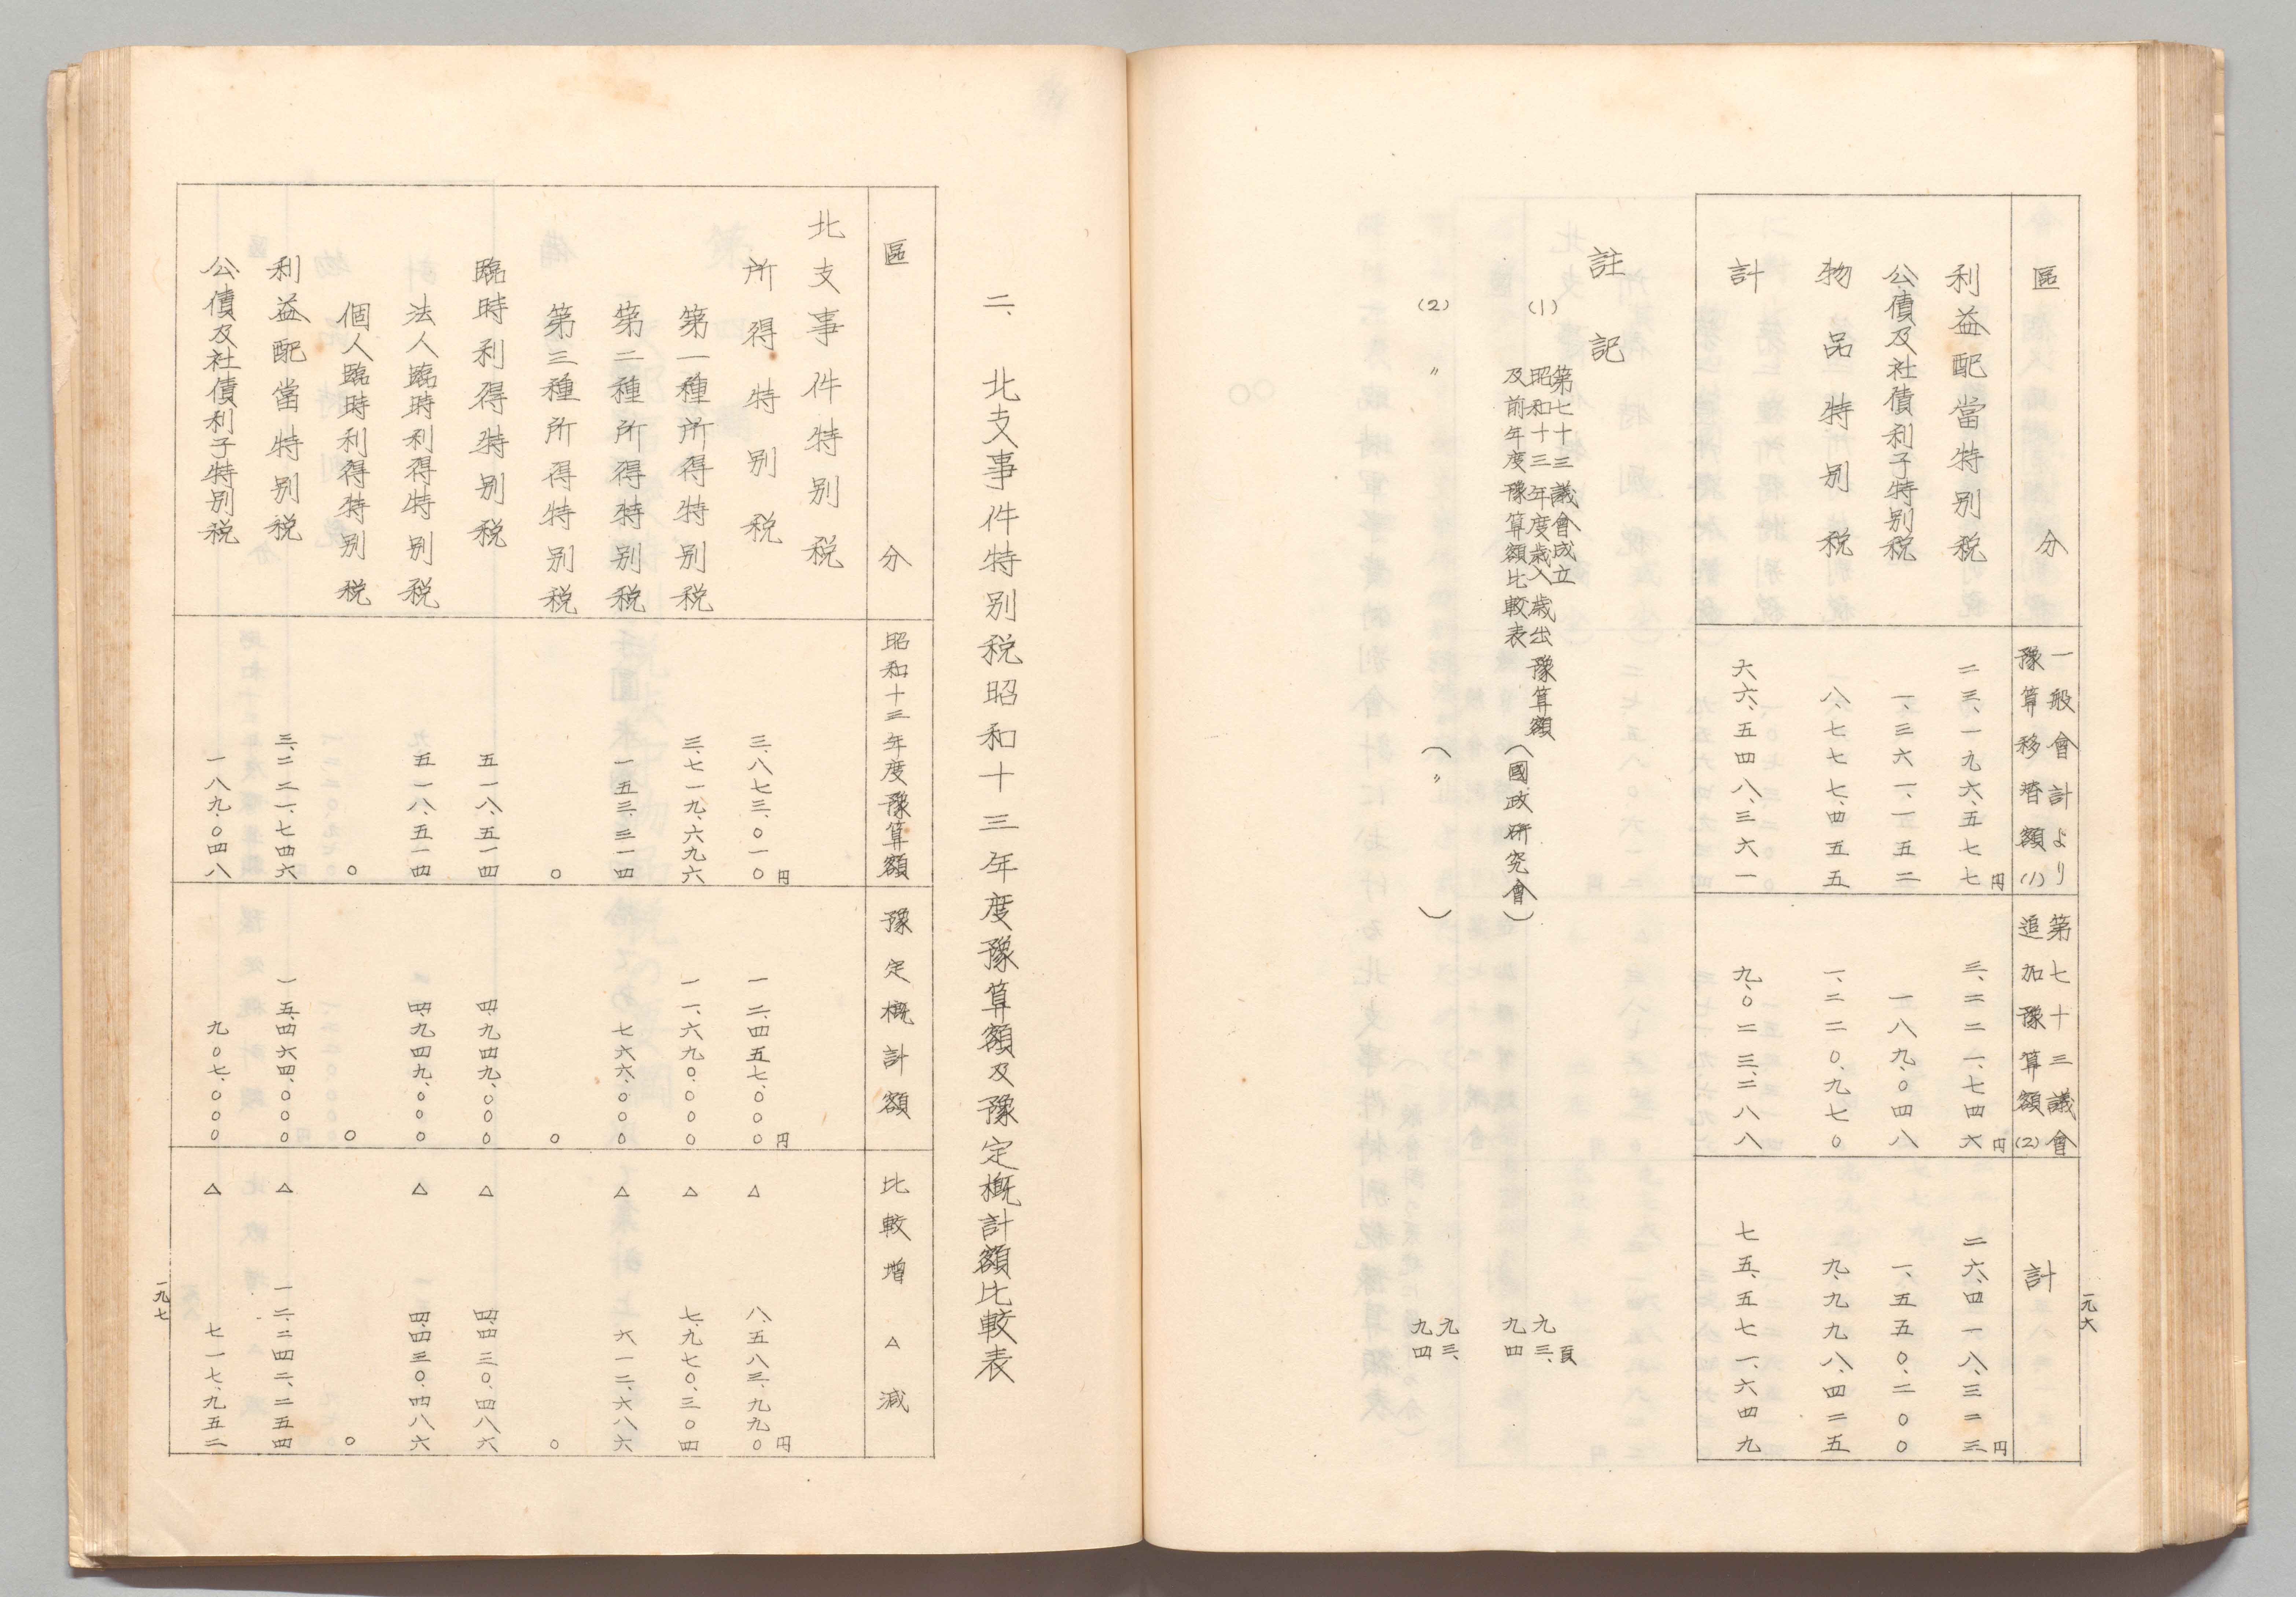 一九六
區分 一般會計より豫算移替額(1) 第七十三議會追加豫算額(2) 計
利益配當特別税 二三、一九六、五七七円 三、二二一、七四六円 二六、四一八、三二三円
公債及社債利子特別税 一、三六一、一五二 一八九、〇四八 一、五五〇、二〇〇
物品特別税 八、七七七、四五五 一、二二〇、九七〇 九、九九八、四二五
計 六六、五四八、三六一 九、〇二三、二八八 七五、五七一、六四九
註記
(1) 第七十三議會成立
昭和十三年度歳入歳出豫算額
及前年度豫算額比較表 (國政研究會) 九三、九四頁
(2) 〃 (〃) 九三、九四
二、北支事件特別税昭和十三年度豫算額及豫定概計額比較表
區分 昭和十三年度豫算額 豫定概計額 比較增△減
北支事件特別税
所得特別税 三、八七三、〇一〇円 一二、四五七、〇〇〇円 △ 八、五八三、九九〇円
第一種所得特別税 三、七一九、六九六 一一、六九〇、〇〇〇 △ 七、九七〇、三〇四
第二種所得特別税 一五三、三一四 七六六、〇〇〇 △ 六一二、六八六
第三種所得特別税 〇 〇 〇
臨時利得特別税 五一八、五一四 四、九四九、〇〇〇 △ 四、四三〇、四八六
法人臨時利得特別税 五一八、五一四 四、九四九、〇〇〇 △ 四、四三〇、四八六
個人臨時利得特別税 〇 〇 〇
利益配當特別税 三、二二一、七四六 一五、四六四、〇〇〇 △ 一二、二四二、二五四
公債及社債利子特別税 一八九、〇四八 九〇七、〇〇〇 △ 七一七、九五二
一九七